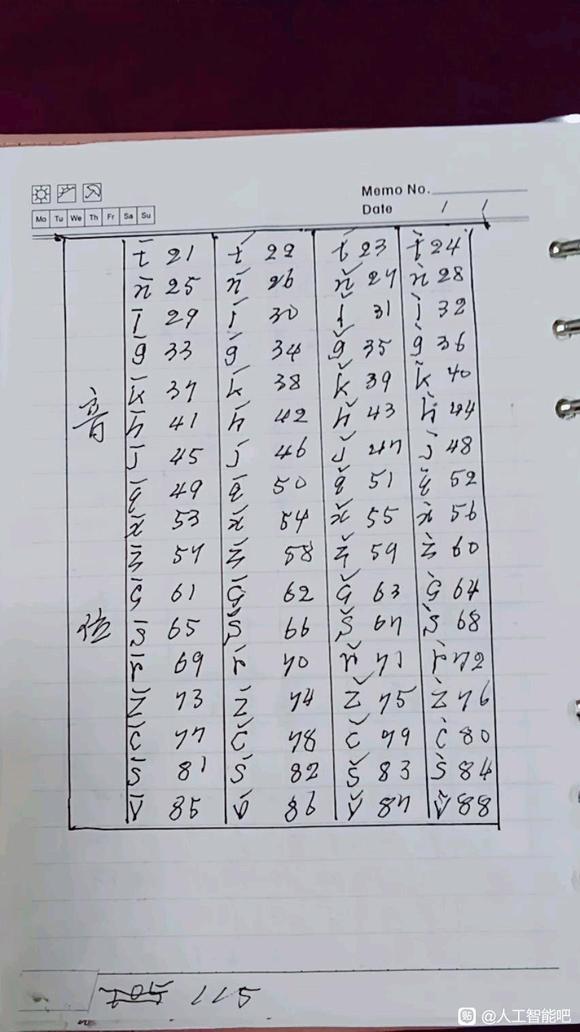 Memo No.
Mo Tu We Th Fr Sa Su
Date / /
音位
t̄ 21 t́ 22 t̆ 23 t̀ 24
n̄ 25 ń 26 n̆ 27 ǹ 28
l̄ 29 ĺ 30 l̆ 31 l̀ 32
ḡ 33 ǵ 34 ğ 35 g̀ 36
k̄ 37 ḱ 38 k̆ 39 k̀ 40
h̄ 41 h́ 42 h̆ 43 h̀ 44
j̄ 45 j́ 46 j̆ 47 j̀ 48
q̄ 49 q́ 50 q̆ 51 q̀ 52
x̄ 53 x́ 54 x̆ 55 x̀ 56
z̧̄ 57 ź̧ 58 z̧̆ 59 z̧̀ 60
ç̄ 61 ḉ 62 ç̆ 63 ç̀ 64
ş̄ 65 ş́ 66 ş̆ 67 ş̀ 68
r̄ 69 ŕ 70 r̆ 71 r̀ 72
z̄ 73 ź 74 z̆ 75 z̀ 76
c̄ 77 ć 78 c̆ 79 c̀ 80
s̄ 81 ś 82 s̆ 83 s̀ 84
v̄ 85 v́ 86 v̆ 87 v̀ 88
115
贴 @人工智能吧